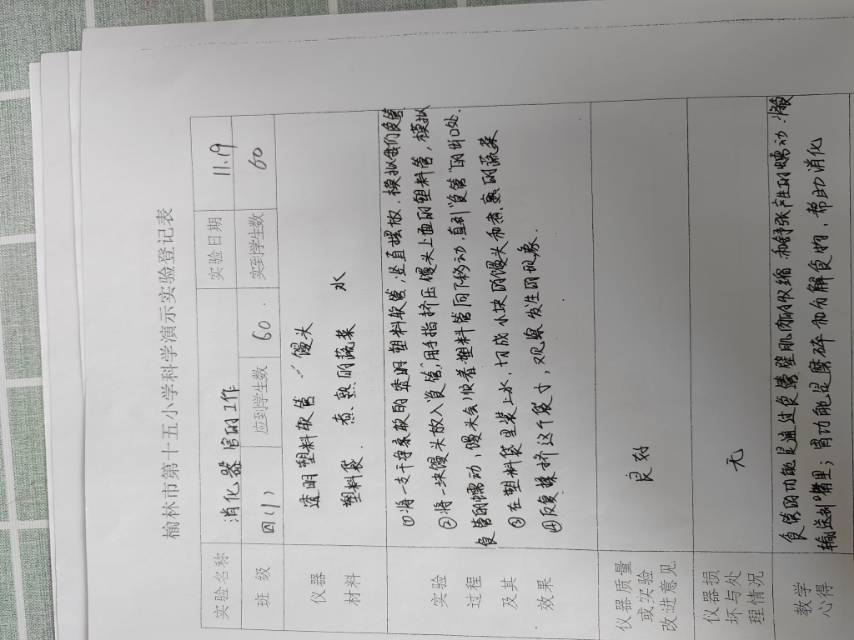 榆林市第十五小学科学演示实验登记表
实验名称 消化器官的工作 实验日期 11.19
班 级 四(1) 应到学生数 60 实到学生数 60
仪器 透明塑料软管 馒头
材料 塑料袋 煮熟的蔬菜 水
实验过程及其效果
①将一支干净柔软的透明塑料软管,竖直摆放,模拟我们食管
②将一块馒头放入"食管",用手指挤压馒头上面的塑料管,模拟
食管的蠕动,馒头会顺着塑料管向下移动,直到"食管"的出口处.
③在塑料袋里装上水,切成小块的馒头和煮熟的蔬菜
④反复揉挤这个袋子,观察发生的现象.
仪器质量或实验改进意见 良好
仪器损坏与处理情况 无
教学 食管的功能是通过食管壁肌肉的收缩和舒张产生的蠕动,
心得 输送到胃里;胃功能是磨碎和分解食物,帮助消化